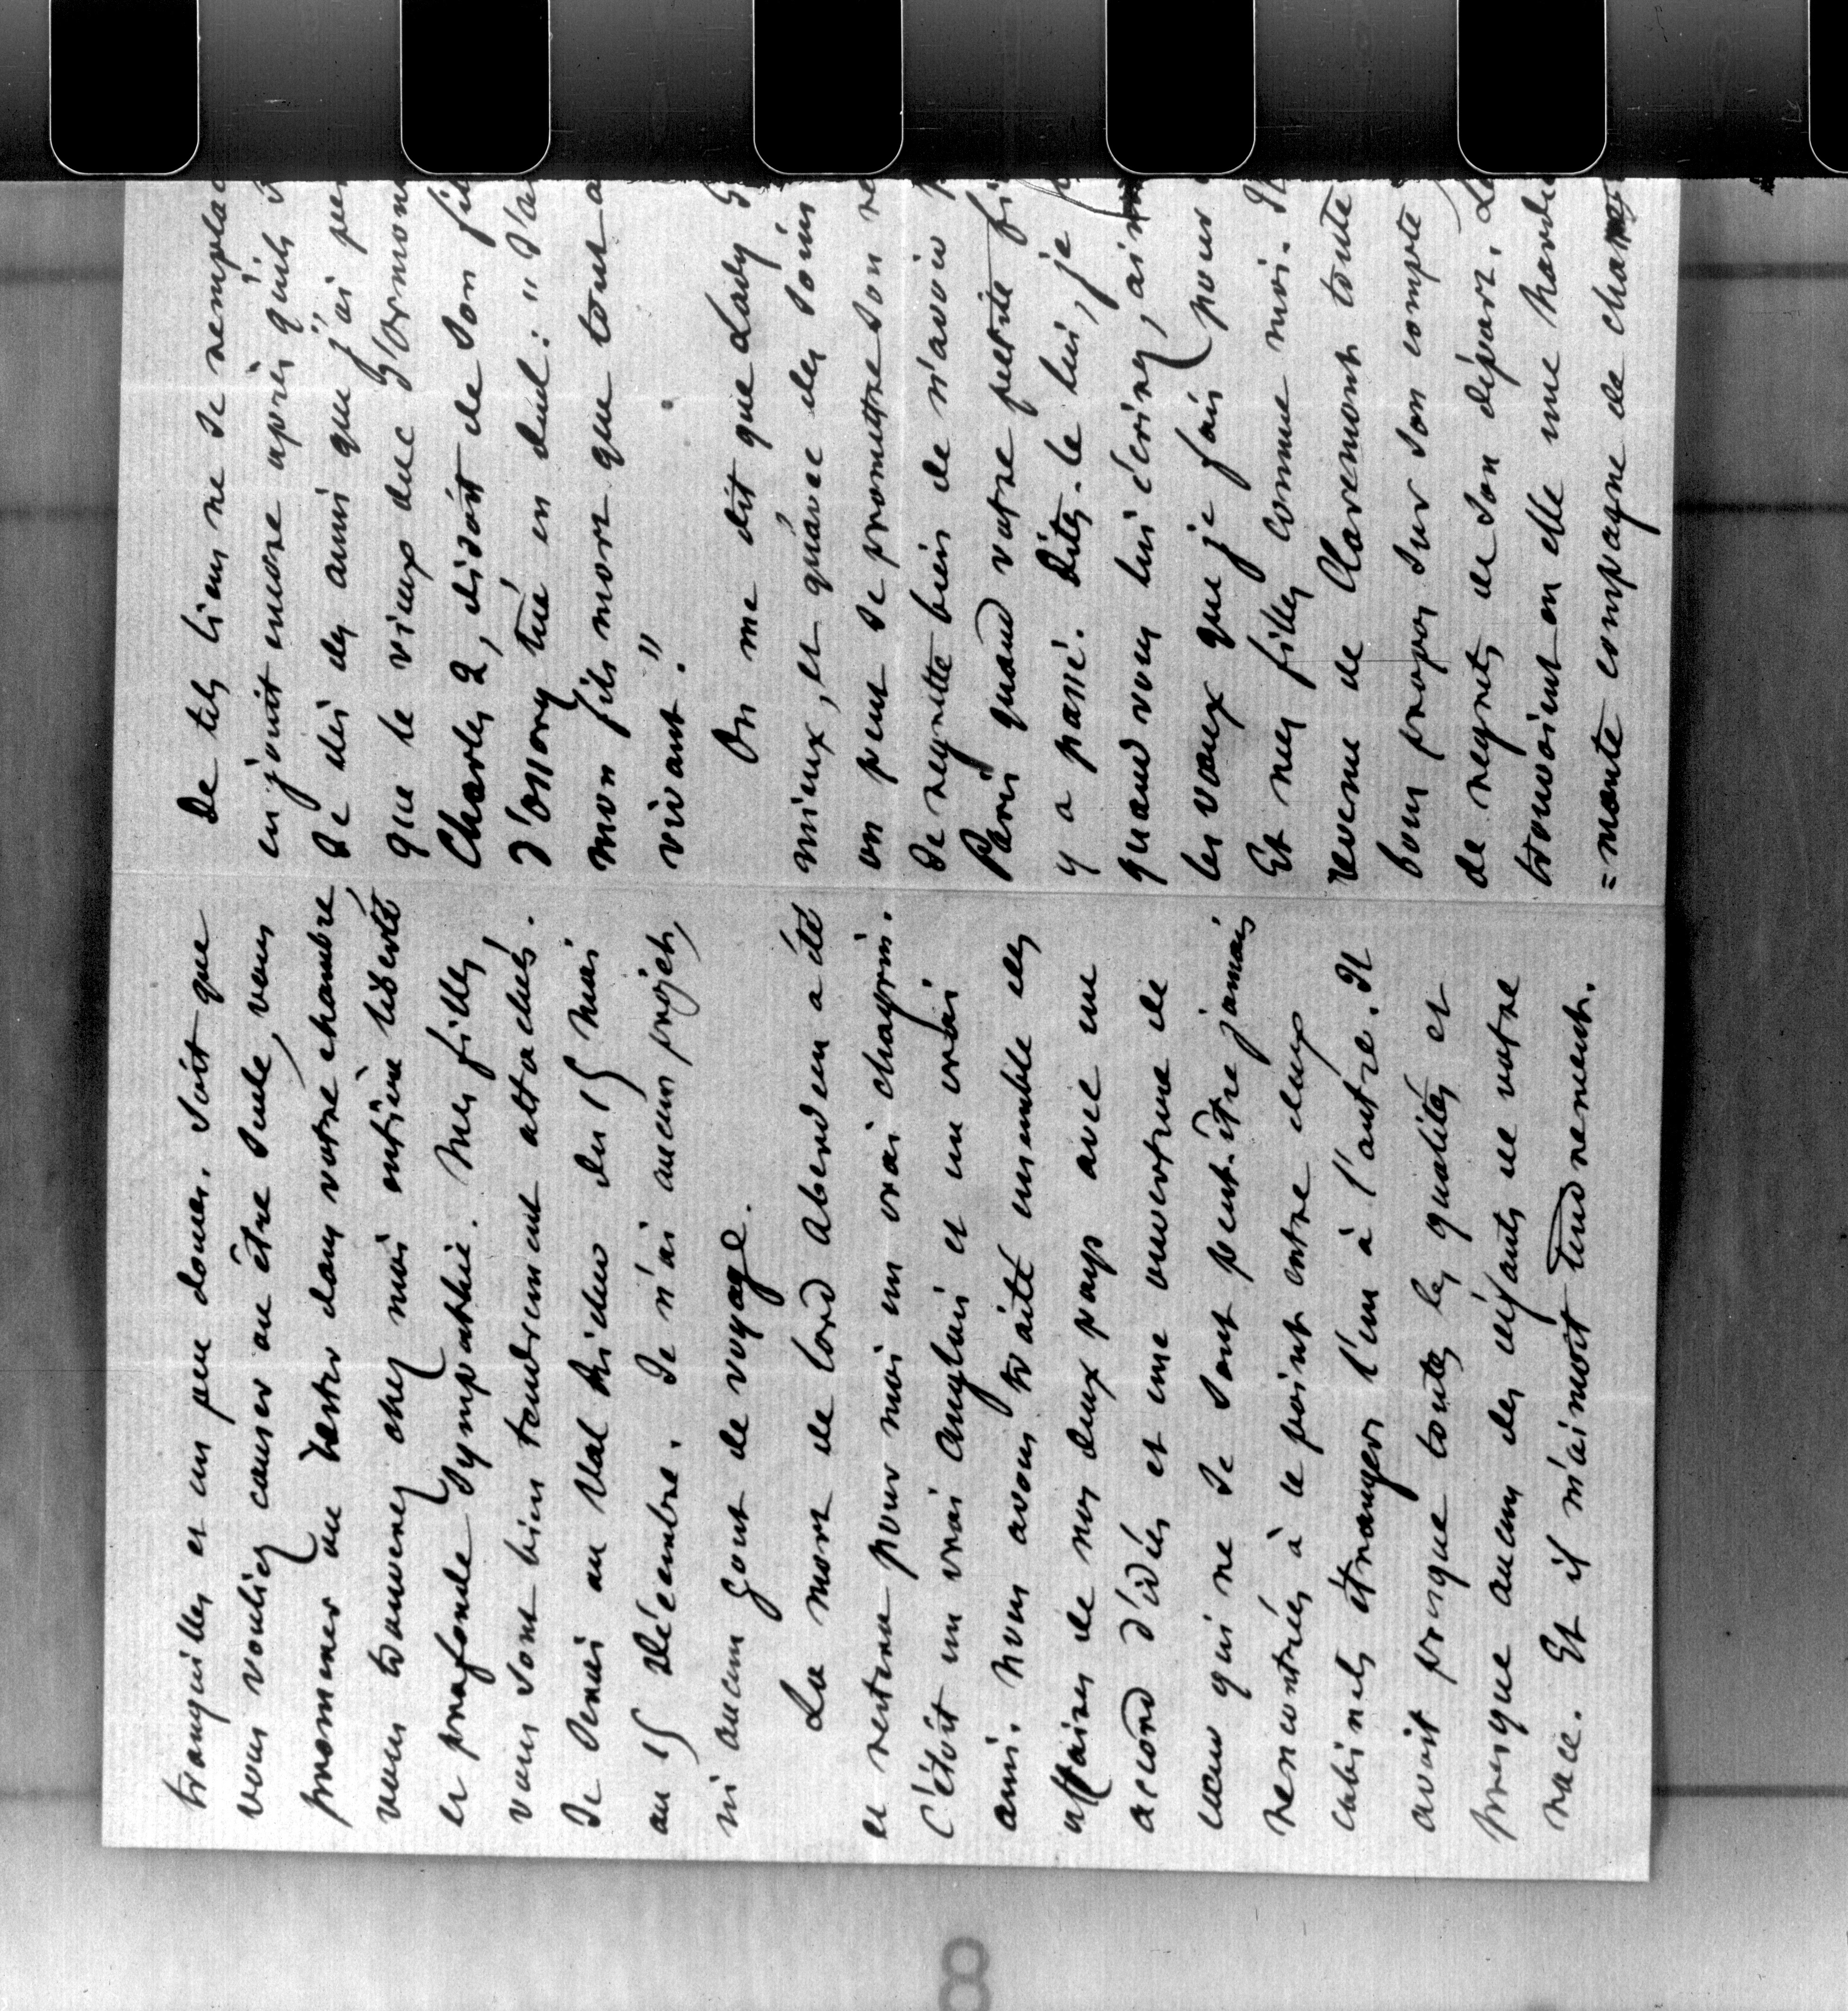 tranquilles et un peu douces. Soit que
vous vouliez causer ou être seule, vous
promener ou rester dans votre chambre
vous trouverez chez moi entière liberté
et profonde sympathie. Mes filles
vous sont bien tendrement attachées.
Je serai au Val Richer du 15 Mai
au 15 Décembre. Je n'ai aucun projet,
ni aucun gout de voyage.
La mort de lord Aberdeen a été
et restera pour moi un vrai chagrin.
C'étoit un vrai Anglais et un vrai
ami. Nous avons traité ensemble les
affaires de nos deux pays avec un
accord d'idées et une ouverture de
cœur qui ne se sont peut-être jamais
rencontrées à ce point entre deux
cabinets étrangers l'un à l'autre. Il
avoit presque toutes les qualités et
presque aucun des défauts de votre
race. Et il m'aimoit tendrement.
De tels liens ne se rempla
en jouit encore après qu'ils
Je dis des amis que j'ai per
que le vieux duc d'Ormon
Charles 2, disoit de son fil
d'Ossory tué en duel: "J'a
mon fils mort que tout a
vivant."
On me dit que Lady
mieux, et qu'avec des soins
on peut se promettre son re
Je regrette bien de n'avoir
Paris quand votre petite fi
y a passé. Dites-le lui, je
quand vous lui écrirez, ain
les vœux que je fais pour
Et mes filles comme moi.
revenu de Claremont toute
bon propos sur son compte
de regrets de son départ. Le
trouvoient en elle une
=mante compagne de